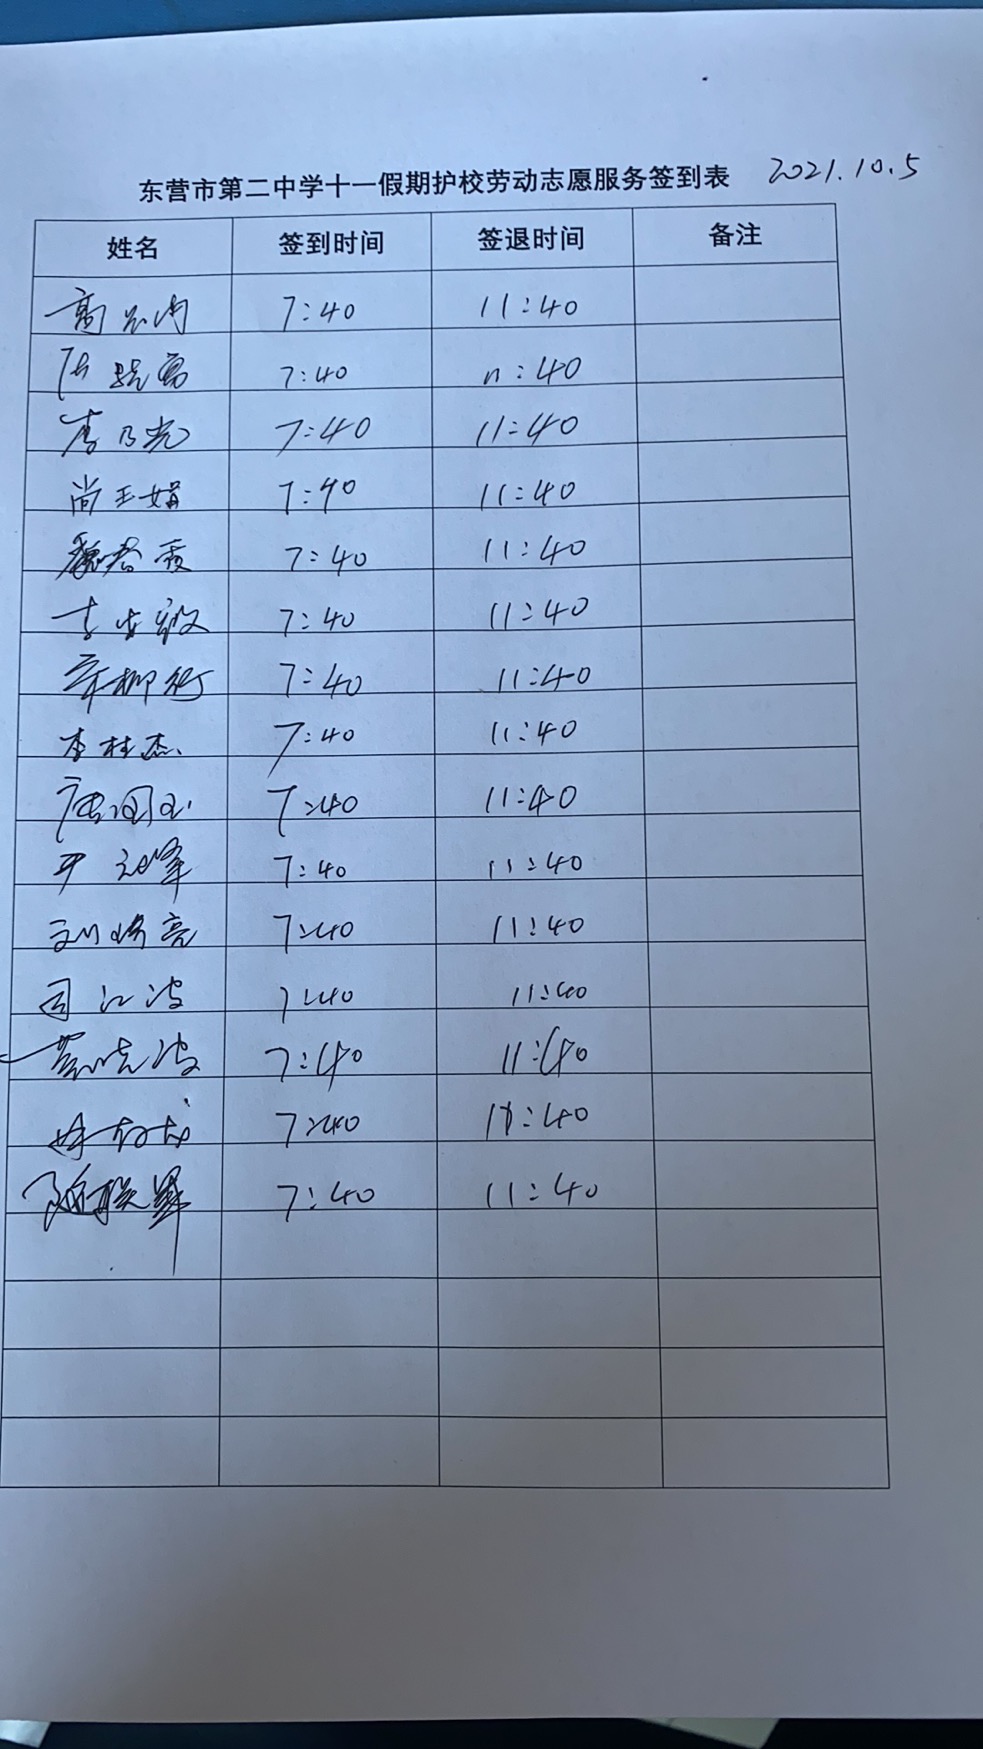 东营市第二中学十一假期护校劳动志愿服务签到表 2021.10.5
姓名 签到时间 签退时间 备注
7:40 11:40
7:40 11:40
李乃光 7:40 11:40
尚玉娟 7:40 11:40
魏春霞 7:40 11:40
7:40 11:40
7:40 11:40
李桂杰 7:40 11:40
7:40 11:40
7:40 11:40
刘峰亮 7:40 11:40
司江波 7:40 11:40
7:40 11:40
7:40 11:40
7:40 11:40